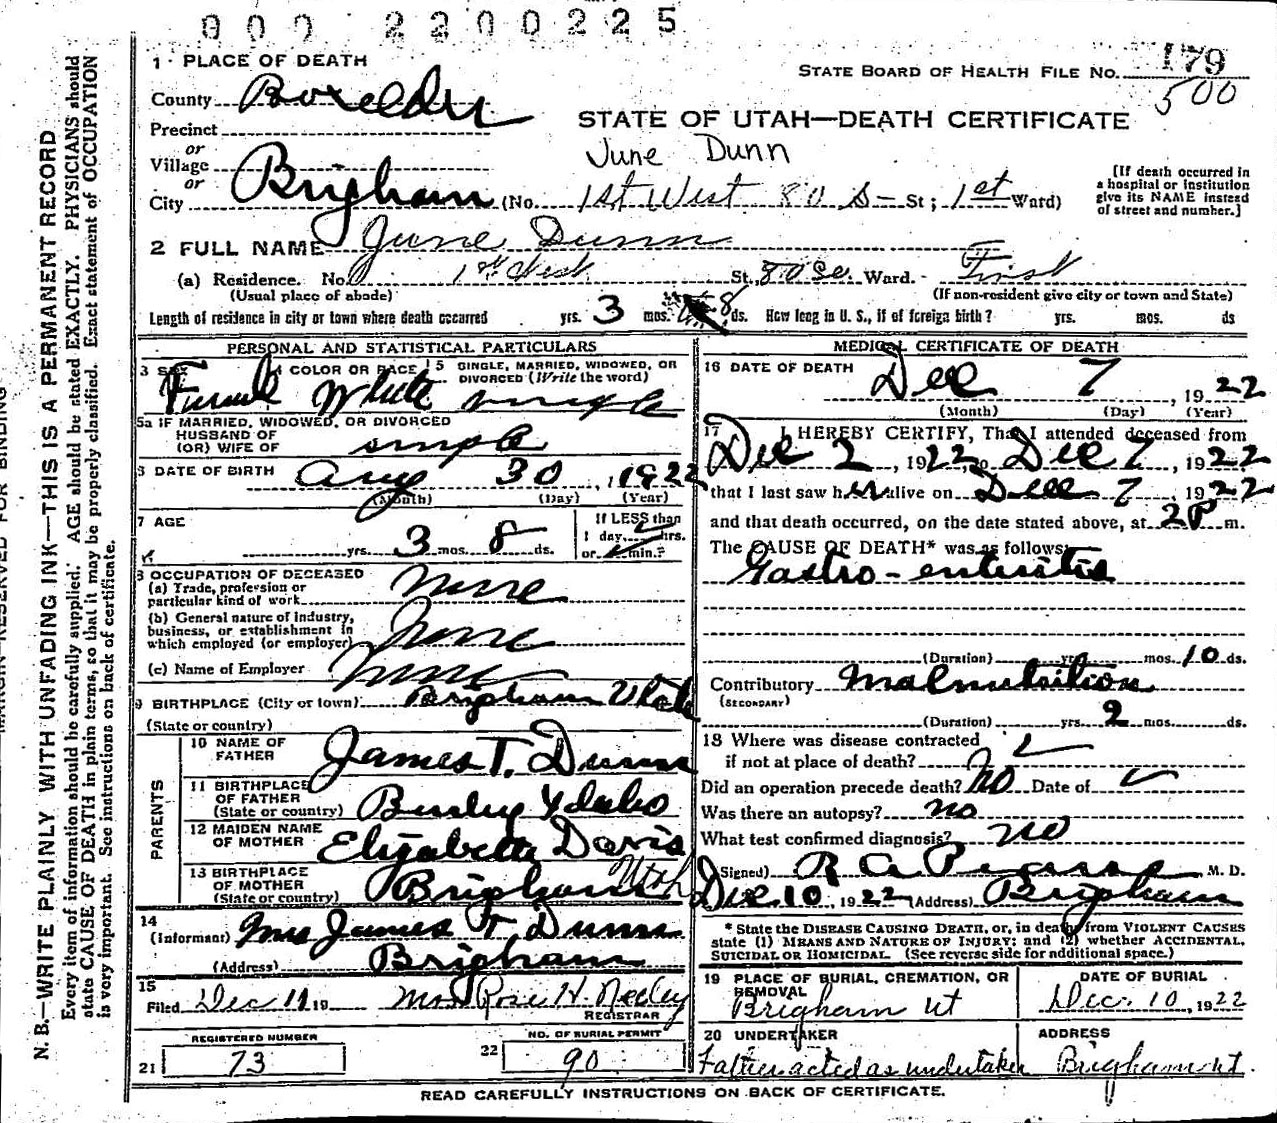 000 2200225
1 PLACE OF DEATH
STATE BOARD OF HEALTH FILE No. 179
500
County Boxelder
STATE OF UTAH—DEATH CERTIFICATE
Precinct
June Dunn
or
Village
or
City Brigham (No. 1st West 80 S— St; 1st Ward)
[If death occurred in a hospital or institution give its NAME instead of street and number.]
2 FULL NAME June Dunn
(a) Residence. No. 1st West St. 80 So. Ward. First
(Usual place of abode)
(If non-resident give city or town and State)
Length of residence in city or town where death occurred yrs. 3 mos. 8 ds. How long in U. S., if of foreign birth? yrs. mos. ds
PERSONAL AND STATISTICAL PARTICULARS
3 SEX Female
4 COLOR OR RACE White
5 SINGLE, MARRIED, WIDOWED, OR DIVORCED (Write the word) single
5a IF MARRIED, WIDOWED, OR DIVORCED
HUSBAND OF
(OR) WIFE OF single
6 DATE OF BIRTH Aug 30, 1922
(Month) (Day) (Year)
7 AGE
yrs. 3 mos. 8 ds.
If LESS than
1 day, hrs.
or min.?
8 OCCUPATION OF DECEASED
(a) Trade, profession or
particular kind of work None
(b) General nature of industry,
business, or establishment in
which employed (or employer) None
(c) Name of Employer None
9 BIRTHPLACE (City or town) Brigham Utah
(State or country)
PARENTS
10 NAME OF
FATHER James T. Dunn
11 BIRTHPLACE
OF FATHER
(State or country) Burley Idaho
12 MAIDEN NAME
OF MOTHER Elizabeth Davis
13 BIRTHPLACE
OF MOTHER
(State or country) Brigham Utah
14
(Informant) Mrs James T. Dunn
(Address) Brigham
15
Filed Dec 11 19 Mrs Rose H. Neeley
REGISTRAR
REGISTERED NUMBER
21 73
NO. OF BURIAL PERMIT
22 90
MEDICAL CERTIFICATE OF DEATH
16 DATE OF DEATH
Dec 7, 1922
(Month) (Day) (Year)
17 I HEREBY CERTIFY, That I attended deceased from
Dec 2, 1922, to Dec 7, 1922
that I last saw her alive on Dec 7, 1922
and that death occurred, on the date stated above, at 2P m.
The CAUSE OF DEATH* was as follows:
Gastro-enteritis
(Duration) yrs. mos. 10 ds.
Contributory Malnutrition
(SECONDARY)
(Duration) yrs. 2 mos. ds.
18 Where was disease contracted
if not at place of death?
Did an operation precede death? No Date of
Was there an autopsy? no
What test confirmed diagnosis? no
(Signed) R A Pearse M. D.
Dec 10, 1922 (Address) Brigham
* State the DISEASE CAUSING DEATH, or, in deaths from VIOLENT CAUSES
state (1) MEANS AND NATURE OF INJURY; and (2) whether ACCIDENTAL,
SUICIDAL OR HOMICIDAL. (See reverse side for additional space.)
19 PLACE OF BURIAL, CREMATION, OR
REMOVAL
Brigham Ut
DATE OF BURIAL
Dec. 10, 1922
20 UNDERTAKER
Father acted as undertaker
ADDRESS
Brigham Ut
READ CAREFULLY INSTRUCTIONS ON BACK OF CERTIFICATE.
MARGIN RESERVED FOR BINDING
N. B.—WRITE PLAINLY WITH UNFADING INK—THIS IS A PERMANENT RECORD
Every item of information should be carefully supplied. AGE should be stated EXACTLY. PHYSICIANS should
state CAUSE OF DEATH in plain terms, so that it may be properly classified. Exact statement of OCCUPATION
is very important. See instructions on back of certificate.